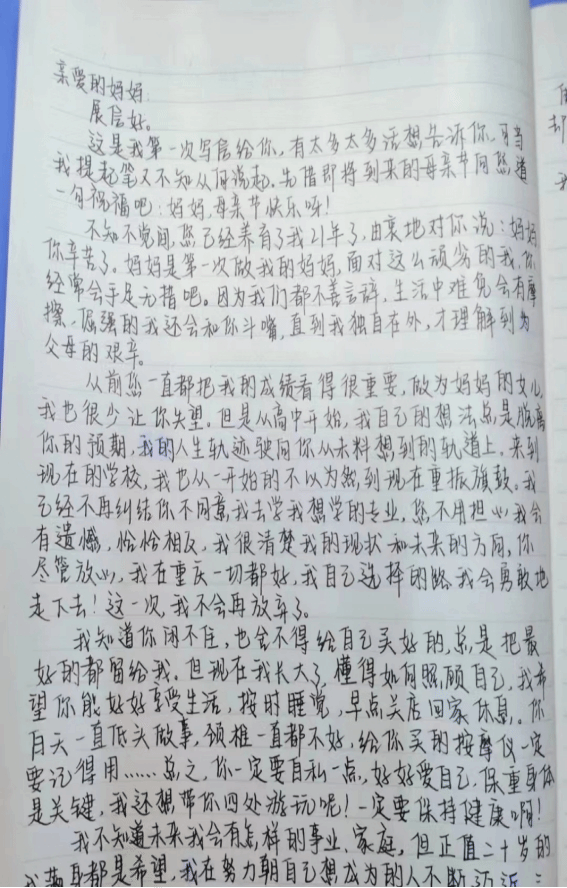 亲爱的妈妈：
展信好。
这是我第一次写信给你，有太多太多话想告诉你，可当
我提起笔又不知从何说起。先借即将到来的母亲节向您道
一句祝福吧：妈妈，母亲节快乐呀！
不知不觉间，您已经养育了我21年了，由衷地对你说：妈妈
你辛苦了。妈妈是第一次做我的妈妈，面对这么顽劣的我，你
经常会手足无措吧。因为我们都不善言辞，生活中难免会有摩
擦，倔强的我还会和你斗嘴，直到我独自在外，才理解到为
父母的艰辛。
从前您一直都把我的成绩看得很重要，做为妈妈的女儿，
我也很少让你失望。但是从高中开始，我自己的想法总是脱离
你的预期，我的人生轨迹驶向你从未料想到的轨道上。来到
现在的学校，我也从一开始的不以为然，到现在重振旗鼓。我
已经不再纠结你不同意我去学我想学的专业，您不用担心我会
有遗憾，恰恰相反，我很清楚我的现状和未来的方向，你
尽管放心，我在重庆一切都好，我自己选择的路我会勇敢地
走下去！这一次，我不会再放弃了。
我知道你闲不住，也舍不得给自己买好的，总是把最
好的都留给我。但现在我长大了，懂得如何照顾自己，我希
望你能好好享受生活，按时睡觉，早点关店回家休息。你
白天一直低头做事，颈椎一直都不好，给你买的按摩仪一定
要记得用……总之，你一定要自私一点，好好爱自己，保重身体
是关键，我还想带你四处游玩呢！一定要保持健康啊！
我不知道未来我会有怎样的事业、家庭，但正值二十岁的
我满身都是希望，我在努力朝自己想成为的人不断迈近
却
我